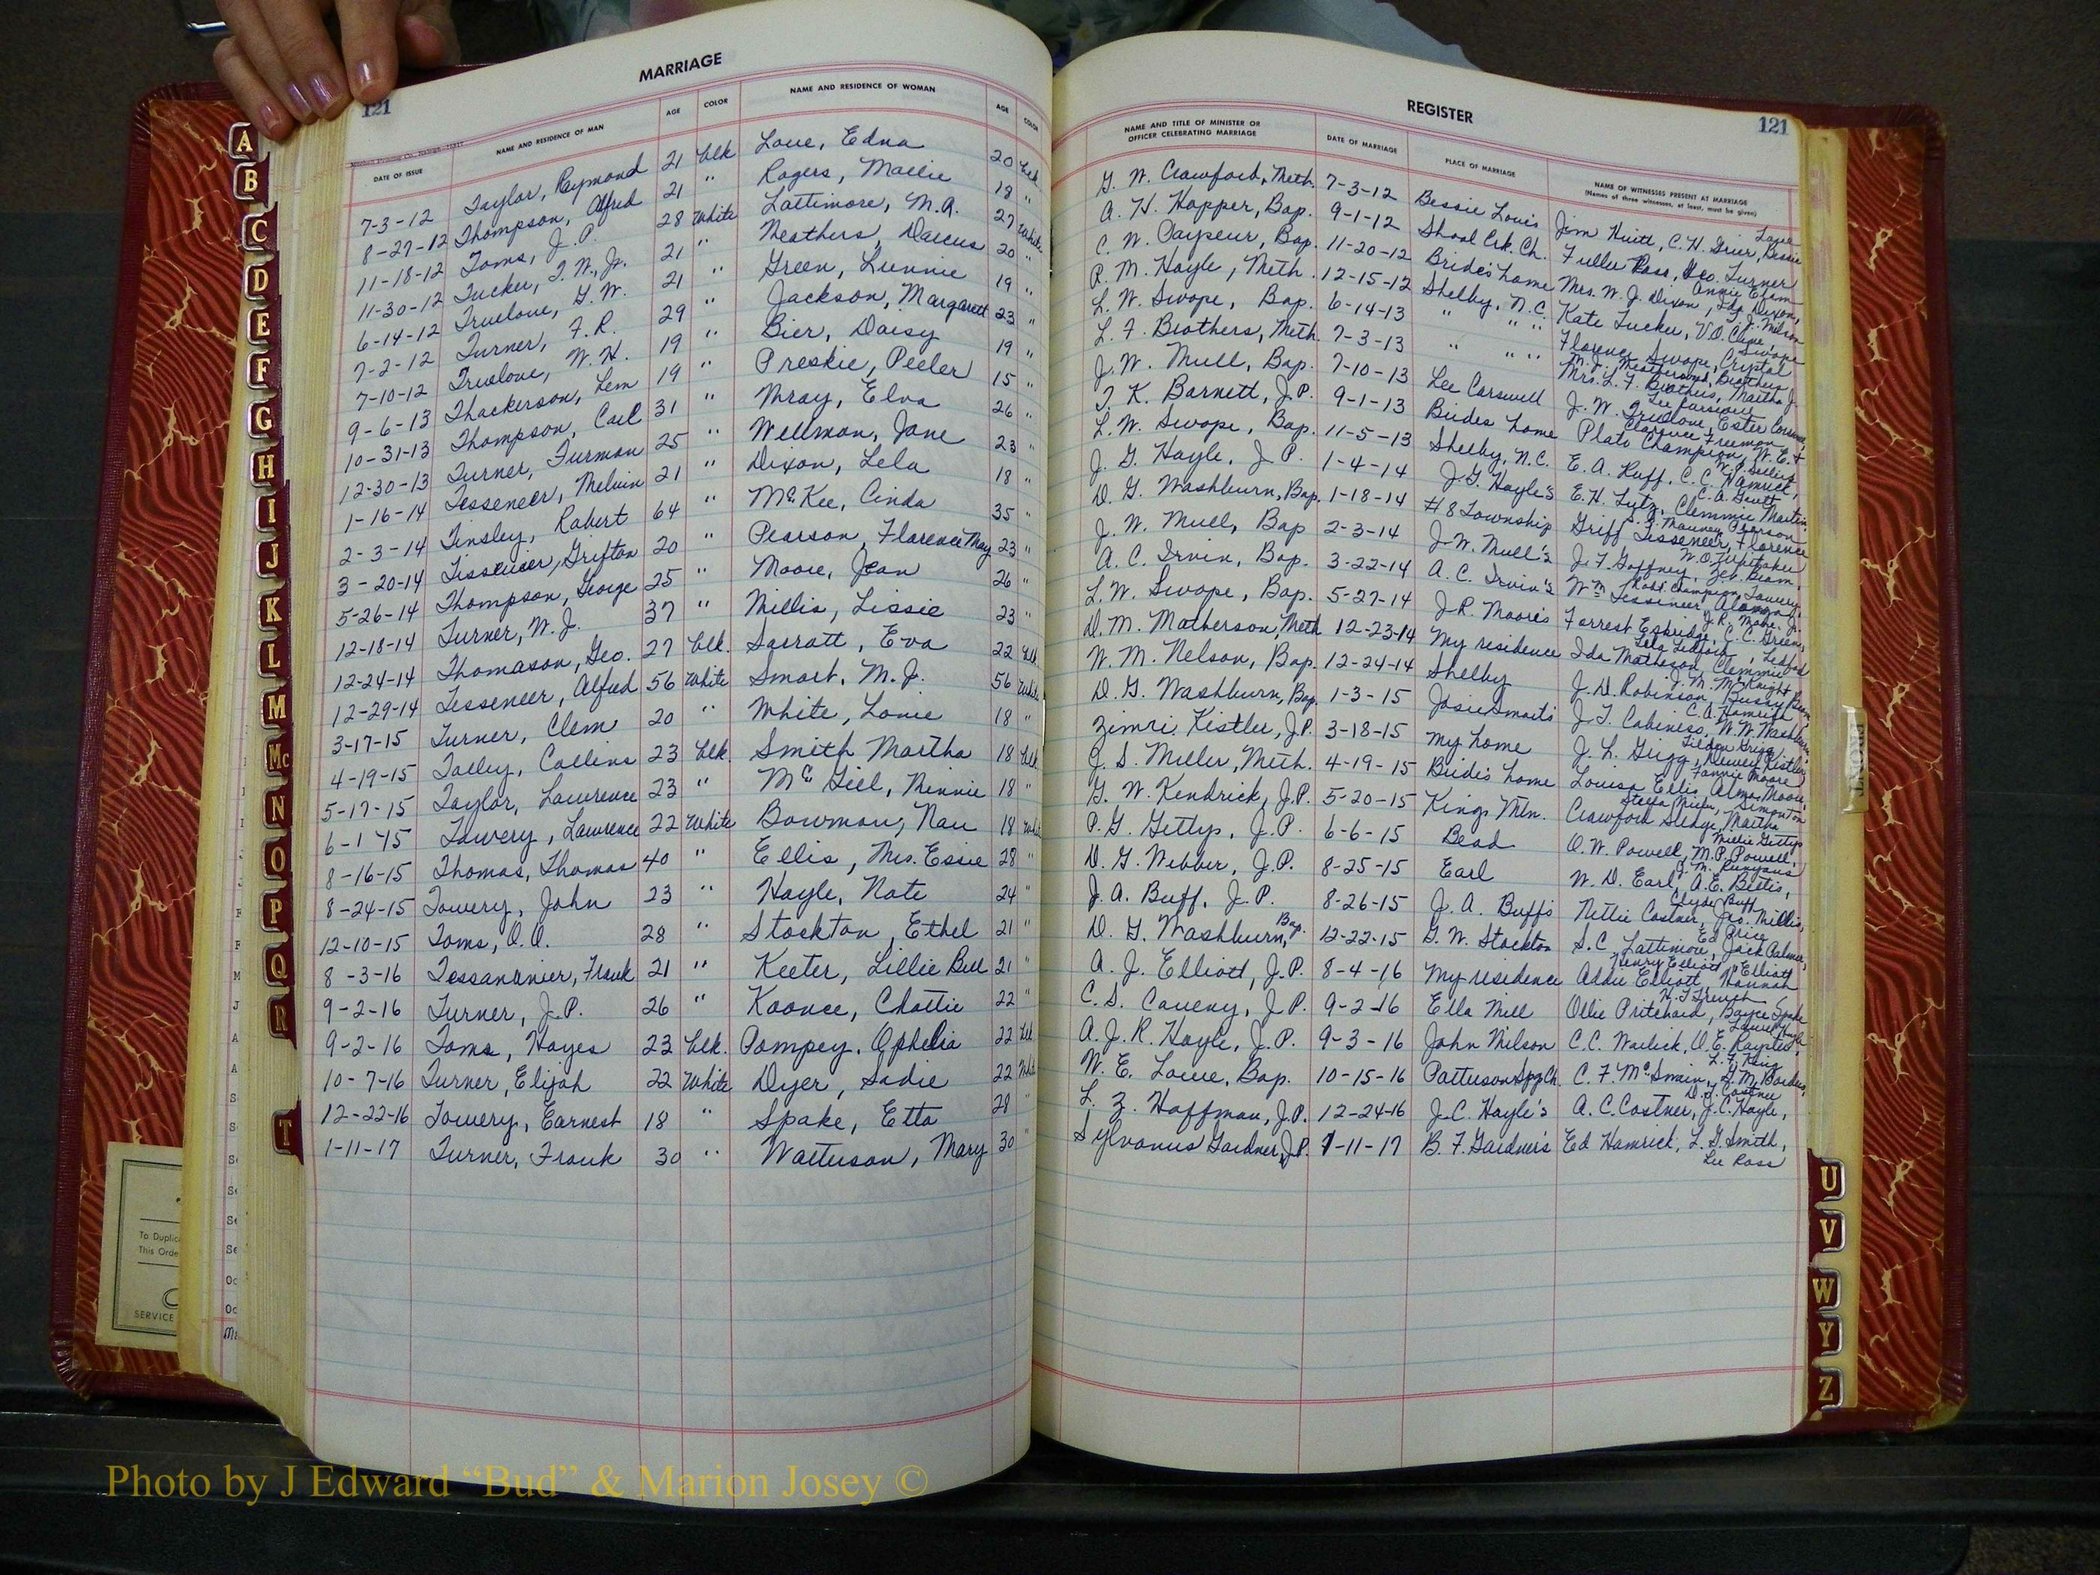 MARRIAGE
121
DATE OF ISSUE NAME AND RESIDENCE OF MAN AGE COLOR NAME AND RESIDENCE OF WOMAN AGE COLOR
7-3-12 Taylor, Raymond 21 blk Love, Edna 20 blk
8-27-12 Thompson, Alfred 21 " Rogers, Mallie 18 "
11-18-12 Toms, J. P. 28 White Lattimore, M. A. 27 White
11-30-12 Tucker, T. W., Jr. 21 " Weathers, Darcus 20 "
6-14-12 Truelove, G. W. 21 " Green, Lunnie 19 "
7-2-12 Turner, F. R. 29 " Jackson, Margarett 23 "
7-10-12 Truelove, W. H. 19 " Bier, Daisy 19 "
9-6-13 Thackerson, Lem 19 " Preskie, Peeler 15 "
10-31-13 Thompson, Carl 31 " Wray, Elva 26 "
12-30-13 Turner, Furman 25 " Wellmon, Jane 23 "
1-16-14 Tesseneer, Melvin 21 " Dixon, Lela 18 "
2-3-14 Tinsley, Robert 64 " McKee, Cinda 35 "
3-20-14 Tisseneer, Grifton 20 " Pearson, Florence May 23 "
5-26-14 Thompson, George 25 " Moore, Jean 26 "
12-18-14 Turner, W. J. 37 " Willis, Lissie 23 "
12-24-14 Thomason, Geo. 27 blk. Sarratt, Eva 22 blk.
12-29-14 Tesseneer, Alfred 56 White Smart, M. J. 56 White
3-17-15 Turner, Clem 20 " White, Lonie 18 "
4-19-15 Talley, Collins 23 blk. Smith Martha 18 blk.
5-17-15 Taylor, Lawrence 23 " McGill, Minnie 18 "
6-1-15 Towery, Lawrence 22 White Bowman, Nan 18 White
8-16-15 Thomas, Thomas 40 " Ellis, Mrs. Essie 28 "
8-24-15 Towery, John 23 " Hoyle, Nate 24 "
12-10-15 Toms, O. O. 28 " Stockton, Ethel 21 "
8-3-16 Tessananier, Frank 21 " Keeter, Lillie Bell 21 "
9-2-16 Turner, J. P. 26 " Koonce, Chottie 22 "
9-2-16 Toms, Hayes 23 blk. Pompey, Ophelia 22 blk
10-7-16 Turner, Elijah 22 White Dyer, Sadie 22 White
12-22-16 Towery, Earnest 18 " Spake, Etta 28 "
1-11-17 Turner, Frank 30 " Watterson, Mary 30 "
REGISTER
121
NAME AND TITLE OF MINISTER OR OFFICER CELEBRATING MARRIAGE DATE OF MARRIAGE PLACE OF MARRIAGE NAME OF WITNESSES PRESENT AT MARRIAGE
(Names of three witnesses, at least, must be given)
G. W. Crawford, Meth. 7-3-12 Bessie Love's Jim Huitt, C. H. Grier, Bessie Love
A. H. Hopper, Bap. 9-1-12 Shoal Crk. Ch. Fuller Ross, Geo. Turner
C. W. Payseur, Bap. 11-20-12 Bride's home Mrs. W. J. Dixon,
R. M. Hoyle, Meth. 12-15-12 Shelby, N.C. Kate Tucker, V. O. Cline,
L. W. Swope, Bap. 6-14-13 " " " Florence Swope, Crystal Swope
L. F. Brothers, Meth. 7-3-13 " " " Mrs. L. F. Brothers, Martha J. Brothers
J. W. Mull, Bap. 7-10-13 Lee Carswell J. W. Truelove, Ester
T. K. Barnett, J.P. 9-1-13 Brides home Plato Champion, W. E. &
L. W. Swope, Bap. 11-5-13 Shelby, N.C. E. A. Ruff, C. C. Hamrick,
J. G. Hoyle, J P. 1-4-14 J. G. Hoyle's E. H. Lutz, Clemmie Martin,
D. G. Washburn, Bap. 1-18-14 #8 Township Griff Tesseneer, Florence Pearson
J. W. Mull, Bap 2-3-14 J. W. Mull's J. F. Gaffney, Zeb. Beam,
A. C. Irvin, Bap. 3-22-14 A. C. Irvin's Wm Tesseneer, Alonzo
L. W. Swope, Bap. 5-27-14 J. R. Moore's Forrest Eskridge, C. C. Green,
D. M. Matherson, Meth 12-23-14 My residence Ida Matheson, Clemmie
W. M. Nelson, Bap. 12-24-14 Shelby J. D. Robinson,
D. G. Washburn, Bap. 1-3-15 Josie Smart's J. T. Cabeness, W. W. Washburn,
Zimri Kistler, J.P. 3-18-15 My home J. L. Grigg, Dewey Kistler
J. S. Miller, Meth. 4-19-15 Bride's home Louisa Ellis, Alma Moore, Fannie Moore
G. W. Kendrick, J.P. 5-20-15 Kings Mtn. Crawford Sledge, Martha
P. G. Gettys, J.P. 6-6-15 Bead O. W. Powell, M. P. Powell, Millie Gettys
D. G. Webber, J.P. 8-25-15 Earl W. D. Earl, A. E. Bettis, J. M. Runyans
J. A. Buff, J.P. 8-26-15 J. A. Buff's Nettie Costner, Geo. Millis, Clyde Buff
D. G. Washburn, Bap. 12-22-15 G. W. Stockton S. C. Lattimore, Jack Palmer, Ed Price
A. J. Elliott, J.P. 8-4-16 My residence Addie Elliott, Hannah Elliott, Henry Elliott
C. S. Caveny, J.P. 9-2-16 Ella Mill Ollie Pritchard, Boyce Spake
A. J. R. Hoyle, J.P. 9-3-16 John Wilson C. C. Warlick, O. E. Royster,
W. E. Lowe, Bap. 10-15-16 Patterson Spg Ch. C. F. McSwain, L. M. Borders, L. F. King
L. Z. Hoffman, J.P. 12-24-16 J. C. Hoyle's A. C. Costner, J. C. Hoyle, D. J. Costner
Sylvanus Gardner, J.P. 1-11-17 B. F. Gardner's Ed Hamrick, L. G. Smith,
Lee Ross
A
B
C
D
E
F
G
H
I
J
K
L
M
Mc
N
O
P
Q
R
T
U
V
W
Y
Z
FRONT
To Duplic
This Orde
SERVICE
Photo by J Edward “Bud” & Marion Josey ©